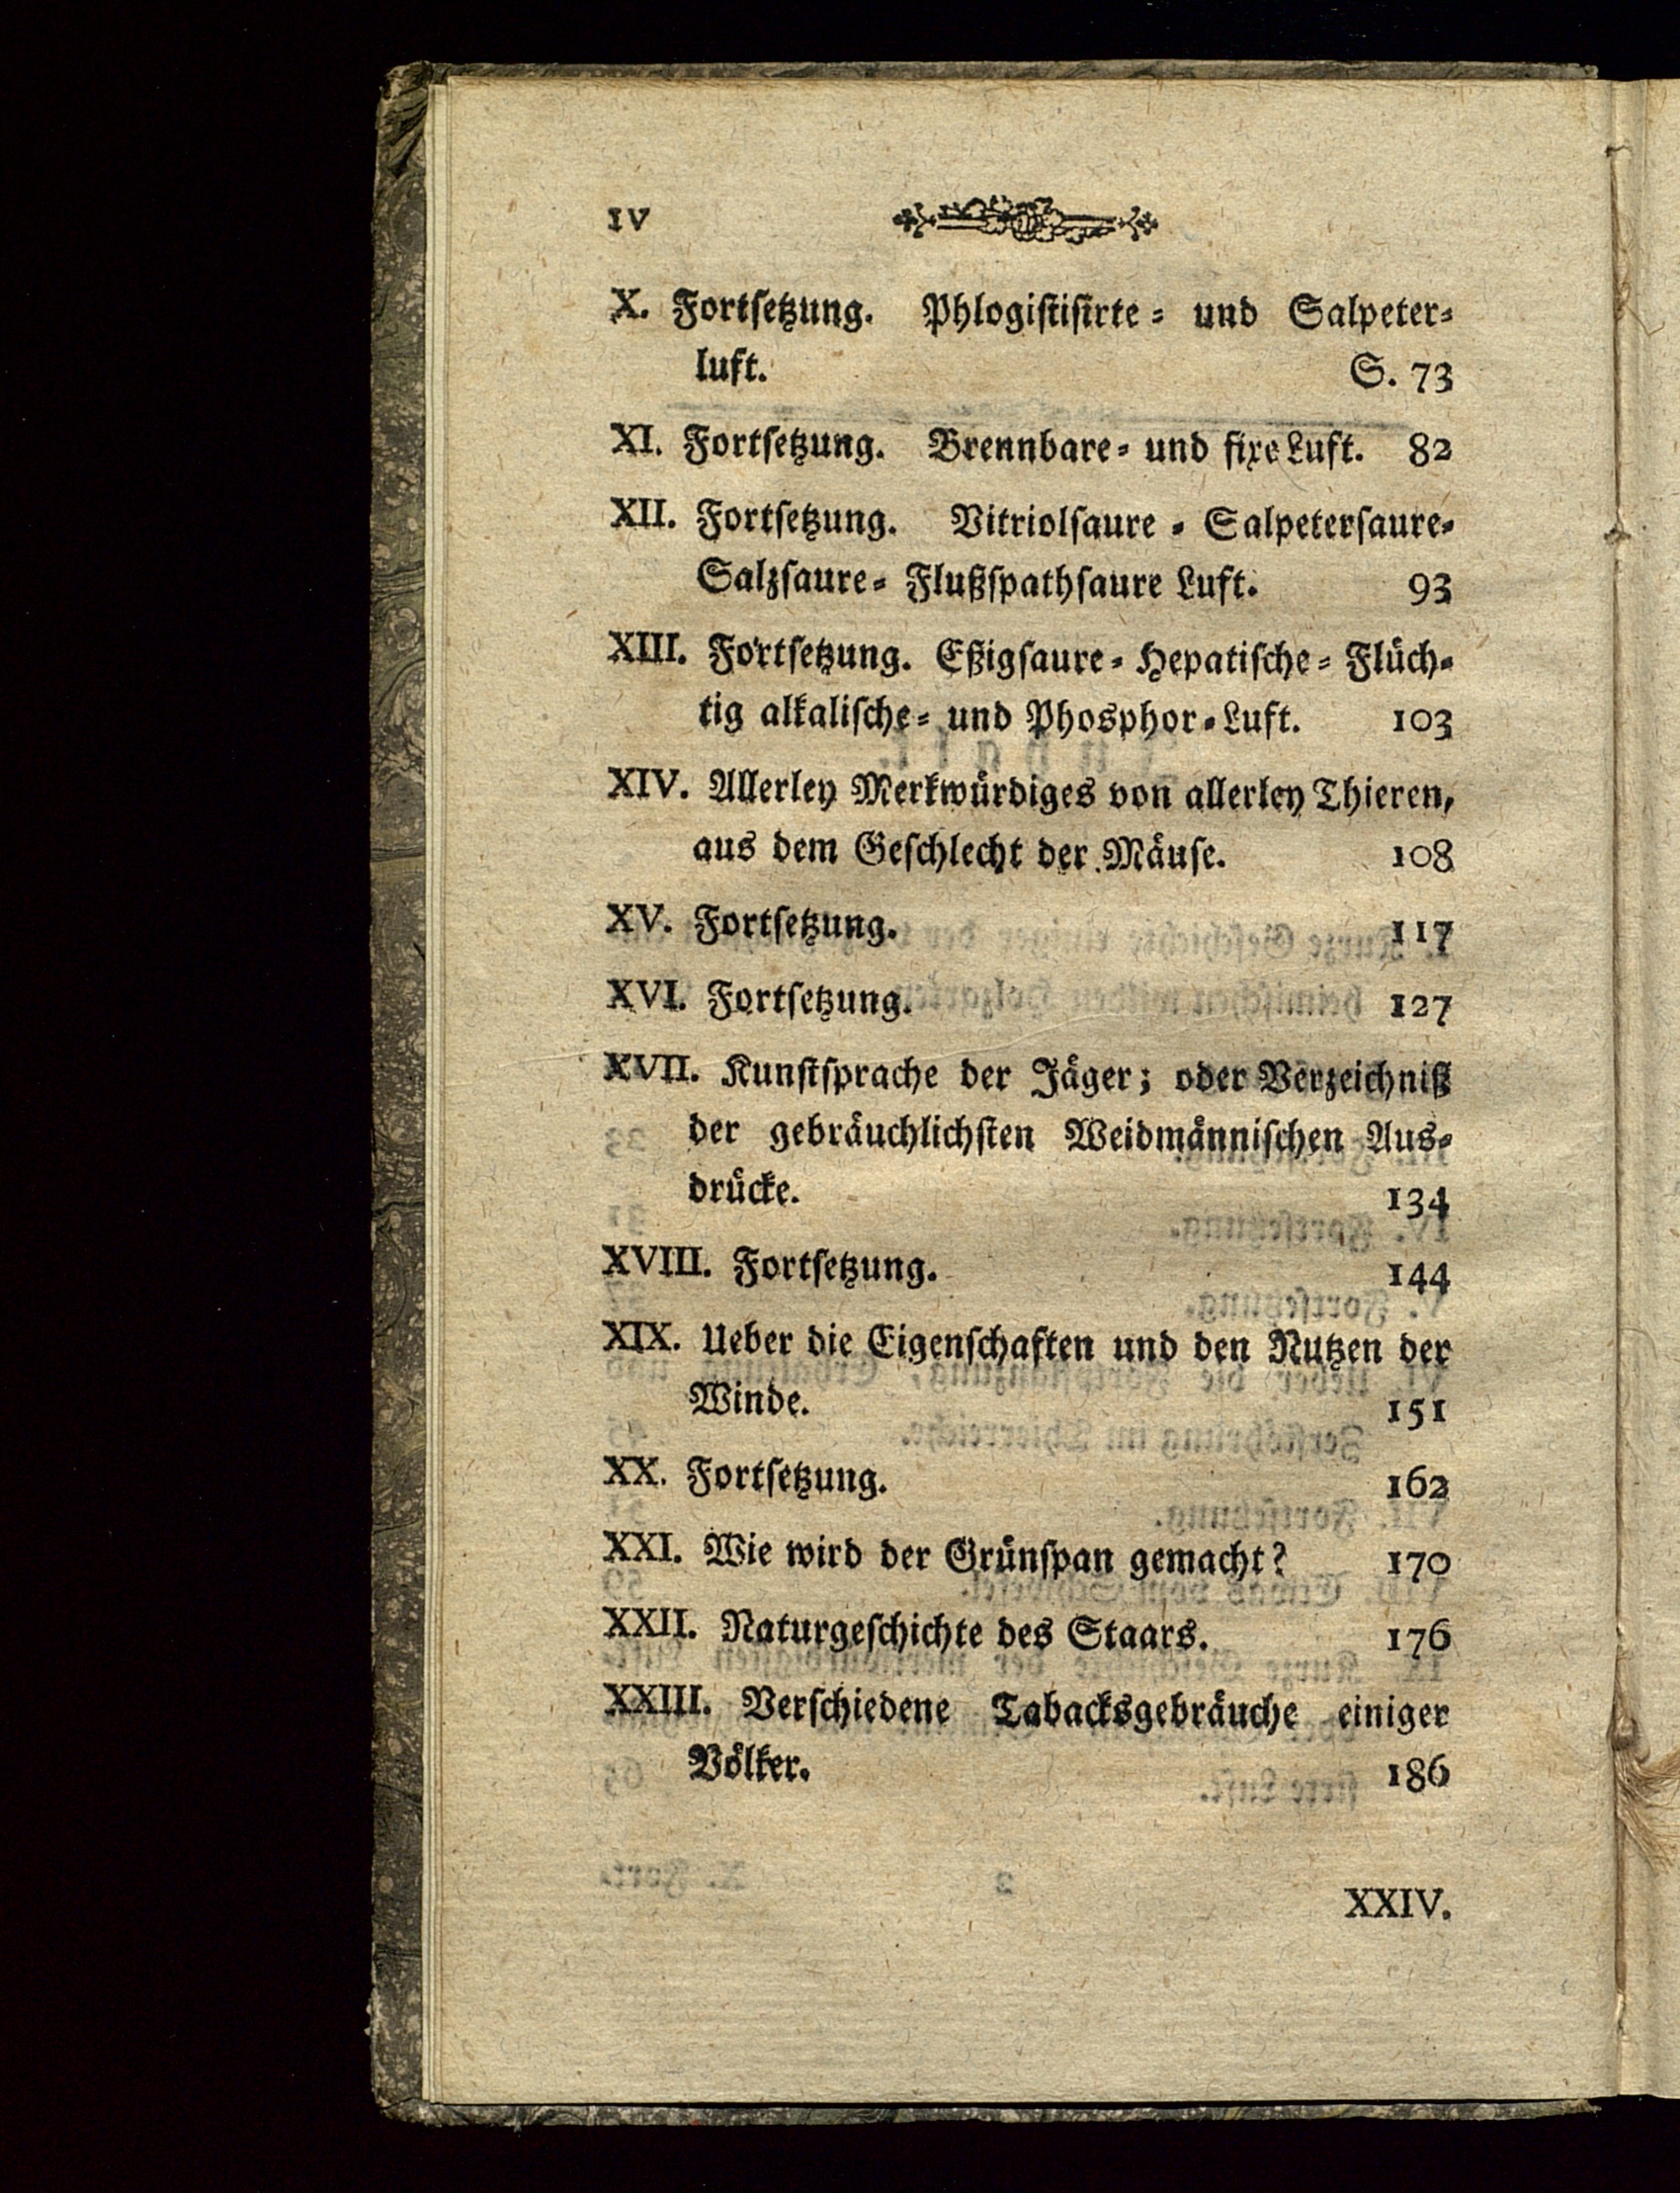 IV
X. Fortsetzung. Phlogistisirte- und Salpeter-
luft. S. 73
XI. Fortsetzung. Brennbare- und fixe Luft. 82
XII. Fortsetzung. Vitriolsaure - Salpetersaure-
Salzsaure- Flußspathsaure Luft. 93
XIII. Fortsetzung. Eßigsaure- Hepatische- Flüch-
tig alkalische- und Phosphor-Luft. 103
XIV. Allerley Merkwürdiges von allerley Thieren,
aus dem Geschlecht der Mäuse. 108
XV. Fortsetzung. 117
XVI. Fortsetzung. 127
XVII. Kunstsprache der Jäger; oder Verzeichniß
der gebräuchlichsten Weidmännischen Aus-
drücke. 134
XVIII. Fortsetzung. 144
XIX. Ueber die Eigenschaften und den Nutzen der
Winde. 151
XX. Fortsetzung. 162
XXI. Wie wird der Grünspan gemacht? 170
XXII. Naturgeschichte des Staars. 176
XXIII. Verschiedene Tabacksgebräuche einiger
Völker. 186
XXIV.